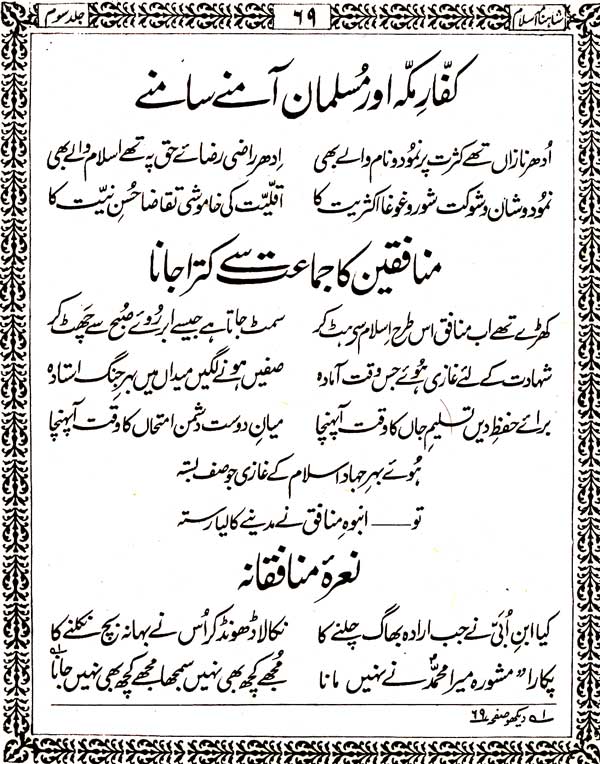 شاہنامہ اسلام ۶۹ جلد سوم
کفّارِ مکّہ اور مُسلمان آمنے سامنے
اُدھر نازاں تھے کثرت پر نمُود و نام والے بھی اِدھر راضی رضائے حق پہ تھے اسلام والے بھی
نمُود و شان و شوکت شور و غوغا اکثریت کا اقلیّت کی خاموشی تقاضا حُسنِ نیّت کا
منافقین کا جماعت سے کترا جانا
کھڑے تھے اب منافق اس طرح اِسلام سے ہٹ کر سمٹ جاتا ہے جیسے ابر رُوئے صبح سے چھَٹ کر
شہادت کے لئے غازی ہُوئے جس وقت آمادہ صفیں ہونے لگیں میداں میں بہرِ جنگ استادہ
برائے حفظِ دیں تسلیمِ جاں کا وقت آپہنچا میانِ دوست و دشمن امتحاں کا وقت آپہنچا
ہُوئے بہرِ جہاد اسلام کے غازی جو صف بستہ
تو ـــــ انبوہِ منافق نے مدینے کا لیا رستہ
نعرۂ منافقانہ
کیا ابنِ اُبیّ نے جب ارادہ بھاگ چلنے کا نکالا ڈھونڈ کر اُس نے بہانہ بچ نکلنے کا
پکارا " مشورہ میرا محمدؐ نے نہیں مانا مُجھے کچھ بھی نہیں سمجھا مجھے کچھ بھی نہیں جانا
۱ـ دیکھو صفحہ ۶۹